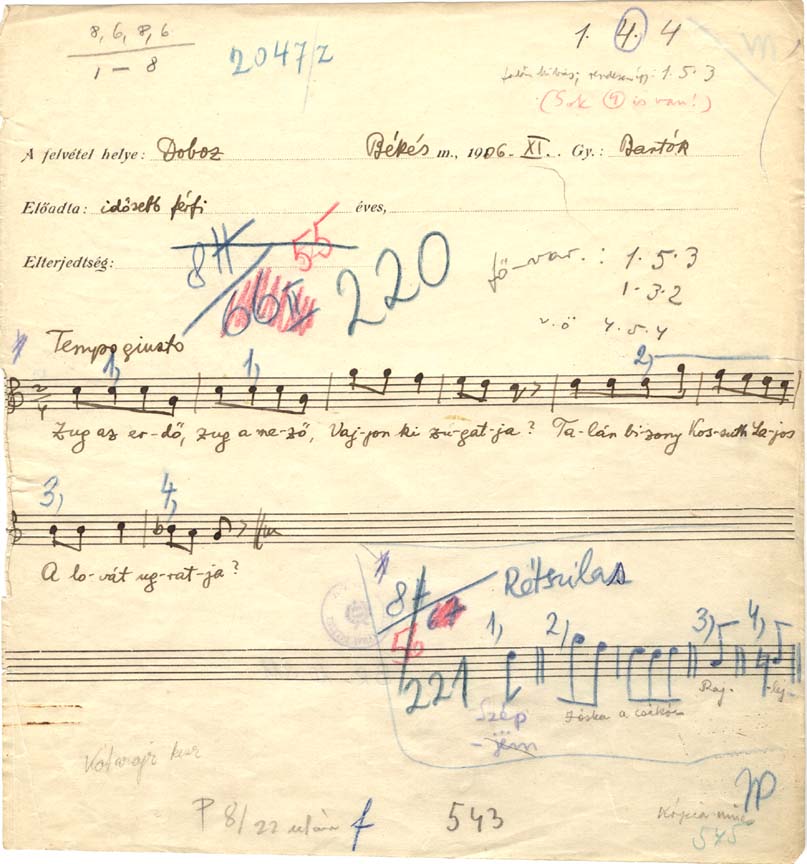 8, 6, 8, 6
1 – 8
2047/z
1. 4. 4
1. 5. 3
(Sok 4 is van!)
A felvétel helye: Doboz Békés m., 1906. XI. Gy.: Bartók
Előadta: idősebb férfi éves,
Elterjedtség:
8 #
55
220
fő-var. : 1. 5. 3
1. 3. 2
v. ö 4. 5. 4
Tempo giusto
1, 1, 2,
2/4
Zúg az er-dő, zúg a me-ző, Vaj-jon ki zú-gat-ja? Ta-lán bi-zony Kos-suth La-jos
3, 4,
A lo-vát ug-rat-ja?
Rétszilas
8 #
67
56
221
1, 2, 3, 4,
Szép
Jóska a csikós
-jém
P 8/22 után f
543
Kópia nincs
545